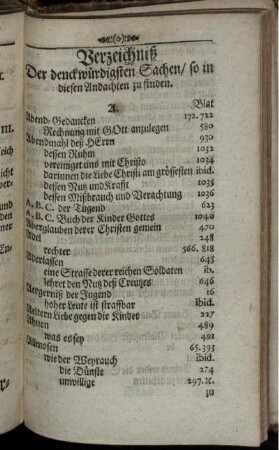 (o)
Verzeichniß
Der denckwürdigsten Sachen/ so in
diesen Andachten zu finden.
A. Blat
Abend-Gedancken 172.722
Rechnung mit GOtt anzulegen 580
Abendmahl deß HErrn 930
dessen Ruhm 1032
vereiniget uns mit Christo 1034
darinnen die Liebe Christi am grössesten ibid.
dessen Nutz und Krafft 1035
dessen Mißbrauch und Verachtung 1036
A. B. C. der Tugend 623
A. B. C. Buch der Kinder Gottes 1040
Aberglauben derer Christen gemein 470
Adel 248
rechter 566. 818
Aderlassen 645
eine Strasse derer reichen Soldaten ib.
lehret den Nutz deß Creutzes 646
Aergerniß der Jugend 16
hoher Leute ist straffbar ibid.
Aeltern Liebe gegen die Kinder 227
Ahnen 489
was es sey 491
Allmosen 65.393
wie der Weyrauch ibid.
die Dünste 274
unwillige 297.&c.
zu
III.